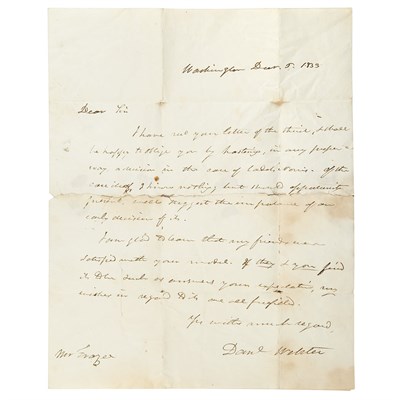 Washington Decr. 5. 1833
Dear Sir
I have recd your letter of the third, & shall
be happy to oblige you by hastening, in any proper
way a decision in the case of
I know nothing, but should opportunity
present, will suggest the importance of an
early decision of it.
I am glad to learn that my friends are
satisfied with your model. If they & you find
it to be such as answers your expectations, my
wishes in regard to it are all fulfilled.
Yrs with much regard
Danl Webster
Mr Frazee